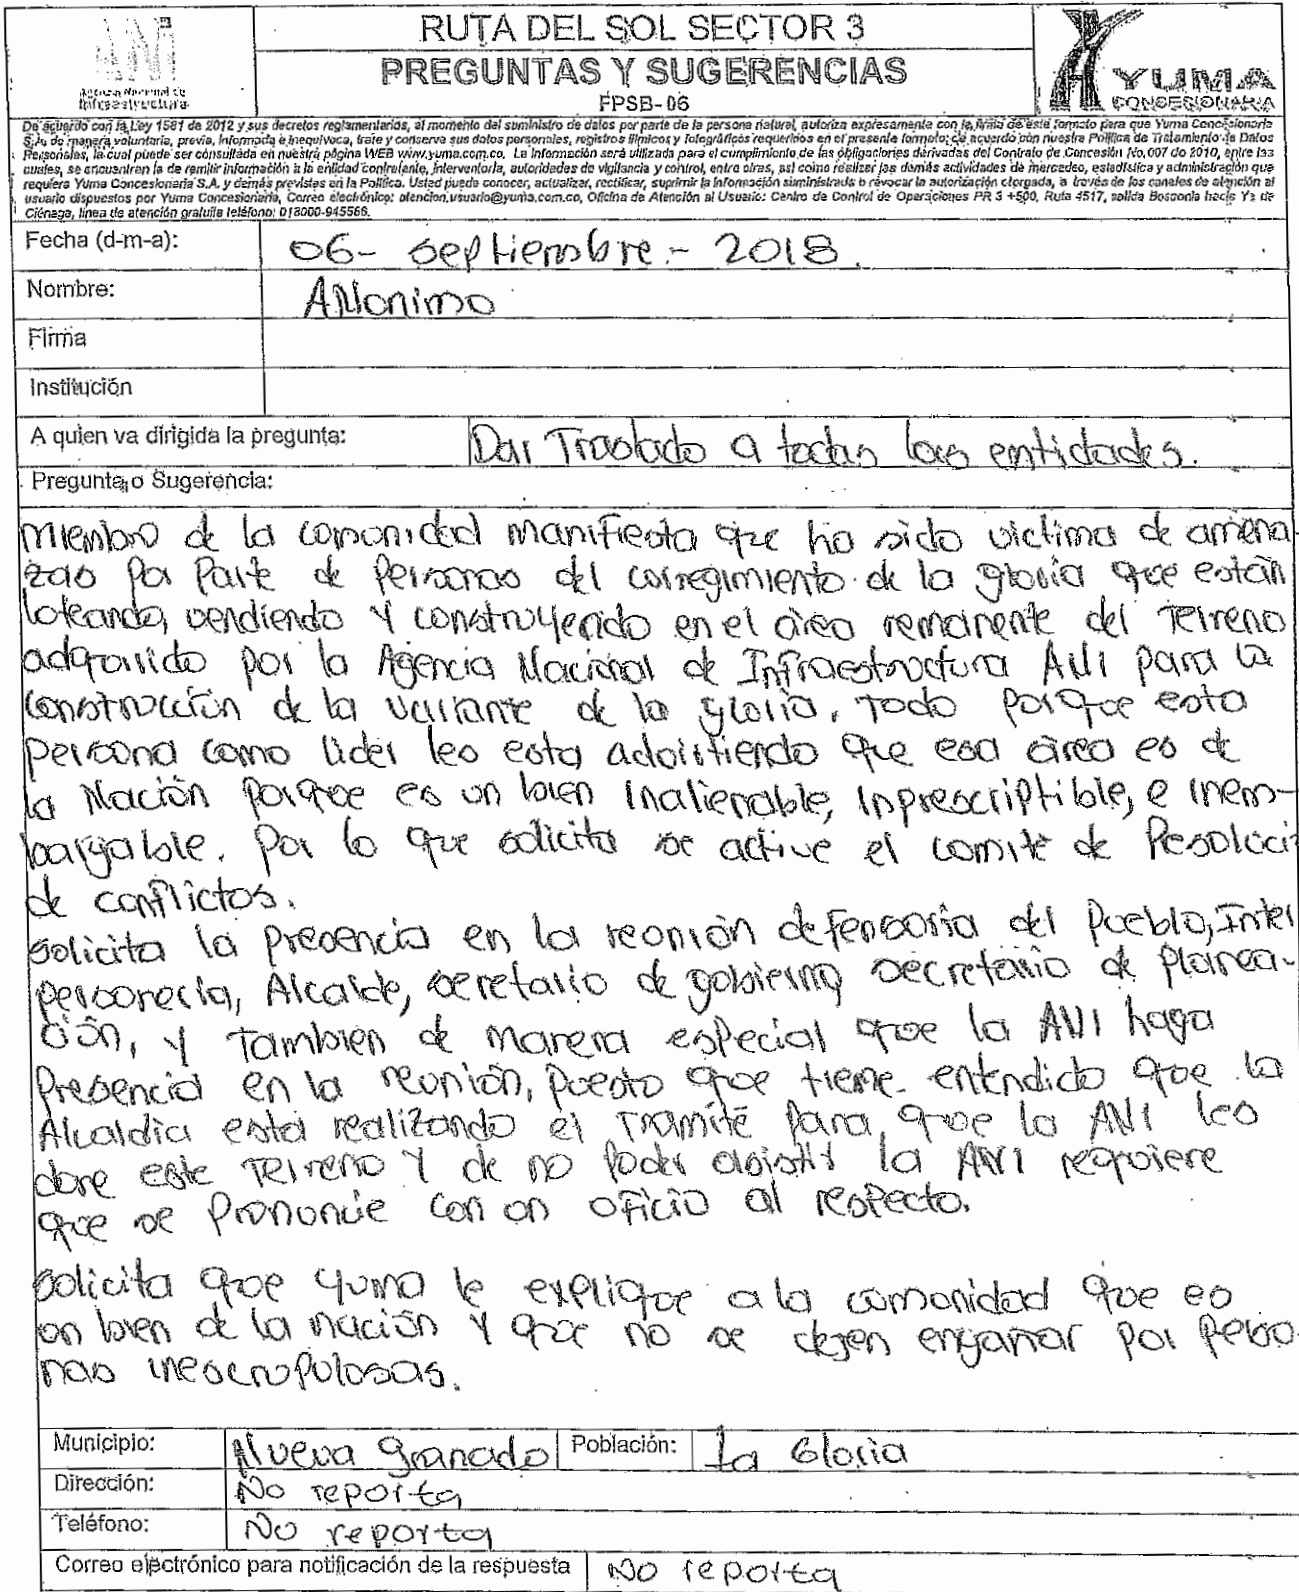 ANI
Agencia Nacional de
Infraestructura
RUTA DEL SOL SECTOR 3
PREGUNTAS Y SUGERENCIAS
FPSB-06
YUMA
CONCESIONARIA
De acuerdo con la Ley 1581 de 2012 y sus decretos reglamentarios, al momento del suministro de datos por parte de la persona natural, autoriza expresamente con la firma de este formato para que Yuma Concesionaria
S.A. de manera voluntaria, previa, informada e inequívoca, trate y conserve sus datos personales, registros fílmicos y fotográficos requeridos en el presente formato; de acuerdo con nuestra Política de Tratamiento de Datos
Personales, la cual puede ser consultada en nuestra página WEB www.yuma.com.co. La información será utilizada para el cumplimiento de las obligaciones derivadas del Contrato de Concesión No. 007 de 2010, entre las
cuales, se encuentran la de remitir información a la entidad contratante, interventoría, autoridades de vigilancia y control, entre otras, así como realizar las demás actividades de mercadeo, estadística y administración que
requiera Yuma Concesionaria S.A. y demás previstas en la Política. Usted puede conocer, actualizar, rectificar, suprimir la información suministrada o revocar la autorización otorgada, a través de los canales de atención al
usuario dispuestos por Yuma Concesionaria, Correo electrónico: atencion.usuario@yuma.com.co, Oficina de Atención al Usuario: Centro de Control de Operaciones PR 3 +500, Ruta 4517, salida Bosconia hacia Y de
Ciénaga, línea de atención gratuita teléfono: 018000-945566.
Fecha (d-m-a): 06- septiembre - 2018.
Nombre: ANonimo
Firma
Institución
A quien va dirigida la pregunta: Dar Traslado a todas las entidades.
Pregunta o Sugerencia:
miembro de la comunidad manifiesta que ha sido victima de amena-
zas por parte de personas del corregimiento de la gloria que están
loteando, vendiendo y construyendo en el área remanente del terreno
adquirido por la Agencia Nacional de Infraestructura ANI para la
construcción de la variante de la gloria, todo porque esta
persona como lider les esta advirtiendo que esa área es de
la Nación porque es un bien inalienable, inprescriptible, e inem-
bargable. Por lo que solicita se active el comité de Resoluci
de conflictos.
solicita la presencia en la reunión defensoria del Pueblo, Inter
personeria, Alcalde, secretario de gobierno secretario de planea-
ción, y tambien de manera especial que la ANI haga
presencia en la reunión, puesto que tiene entendido que la
Alcaldia está realizando el tramite para que la ANI les
done este terreno y de no poder asistir la ANI requiere
que se pronuncie con un oficio al respecto.
solicita que yuma le explique a la comunidad que es
un bien de la nación y que no se dejen engañar por perso-
nas inescrupulosas.
Municipio: Nueva granada Población: La Gloria
Dirección: No reporta
Teléfono: No reporta
Correo electrónico para notificación de la respuesta No reporta